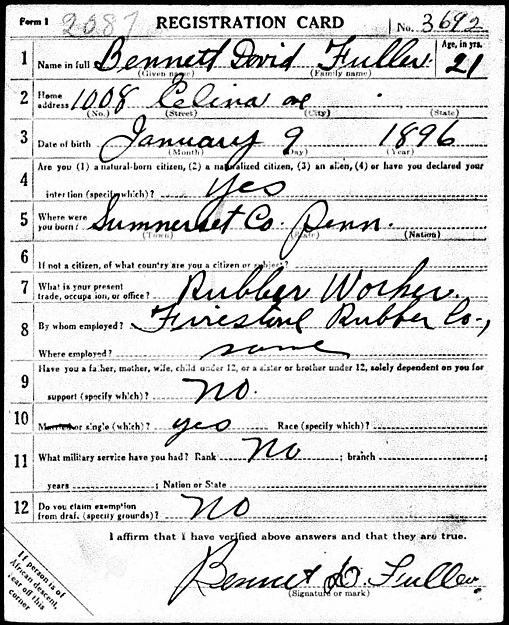 Form 1 2087 REGISTRATION CARD No. 3692
1 Name in full Bennett David Fuller Age, in yrs. 21
(Given name) (Family name)
2 Home address 1008 Celina ave
(No.) (Street) (City) (State)
3 Date of birth January 9 1896
(Month) (Day) (Year)
4 Are you (1) a natural-born citizen, (2) a naturalized citizen, (3) an alien, (4) or have you declared your
intention (specify which)? Yes
5 Where were you born? Sumnerset Co. Penn.
(Town) (State) (Nation)
6 If not a citizen, of what country are you a citizen or subject?
7 What is your present trade, occupation, or office? Rubber Worker.
8 By whom employed? Firestone Rubber Co.,
Where employed? same
9 Have you a father, mother, wife, child under 12, or a sister or brother under 12, solely dependent on you for
support (specify which)? No.
10 Married or single (which)? yes Race (specify which)?
11 What military service have you had? Rank No ; branch
years ; Nation or State
12 Do you claim exemption from draft (specify grounds)? No
I affirm that I have verified above answers and that they are true.
Bennet D. Fuller.
(Signature or mark)
If person is of
African descent,
tear off this
corner